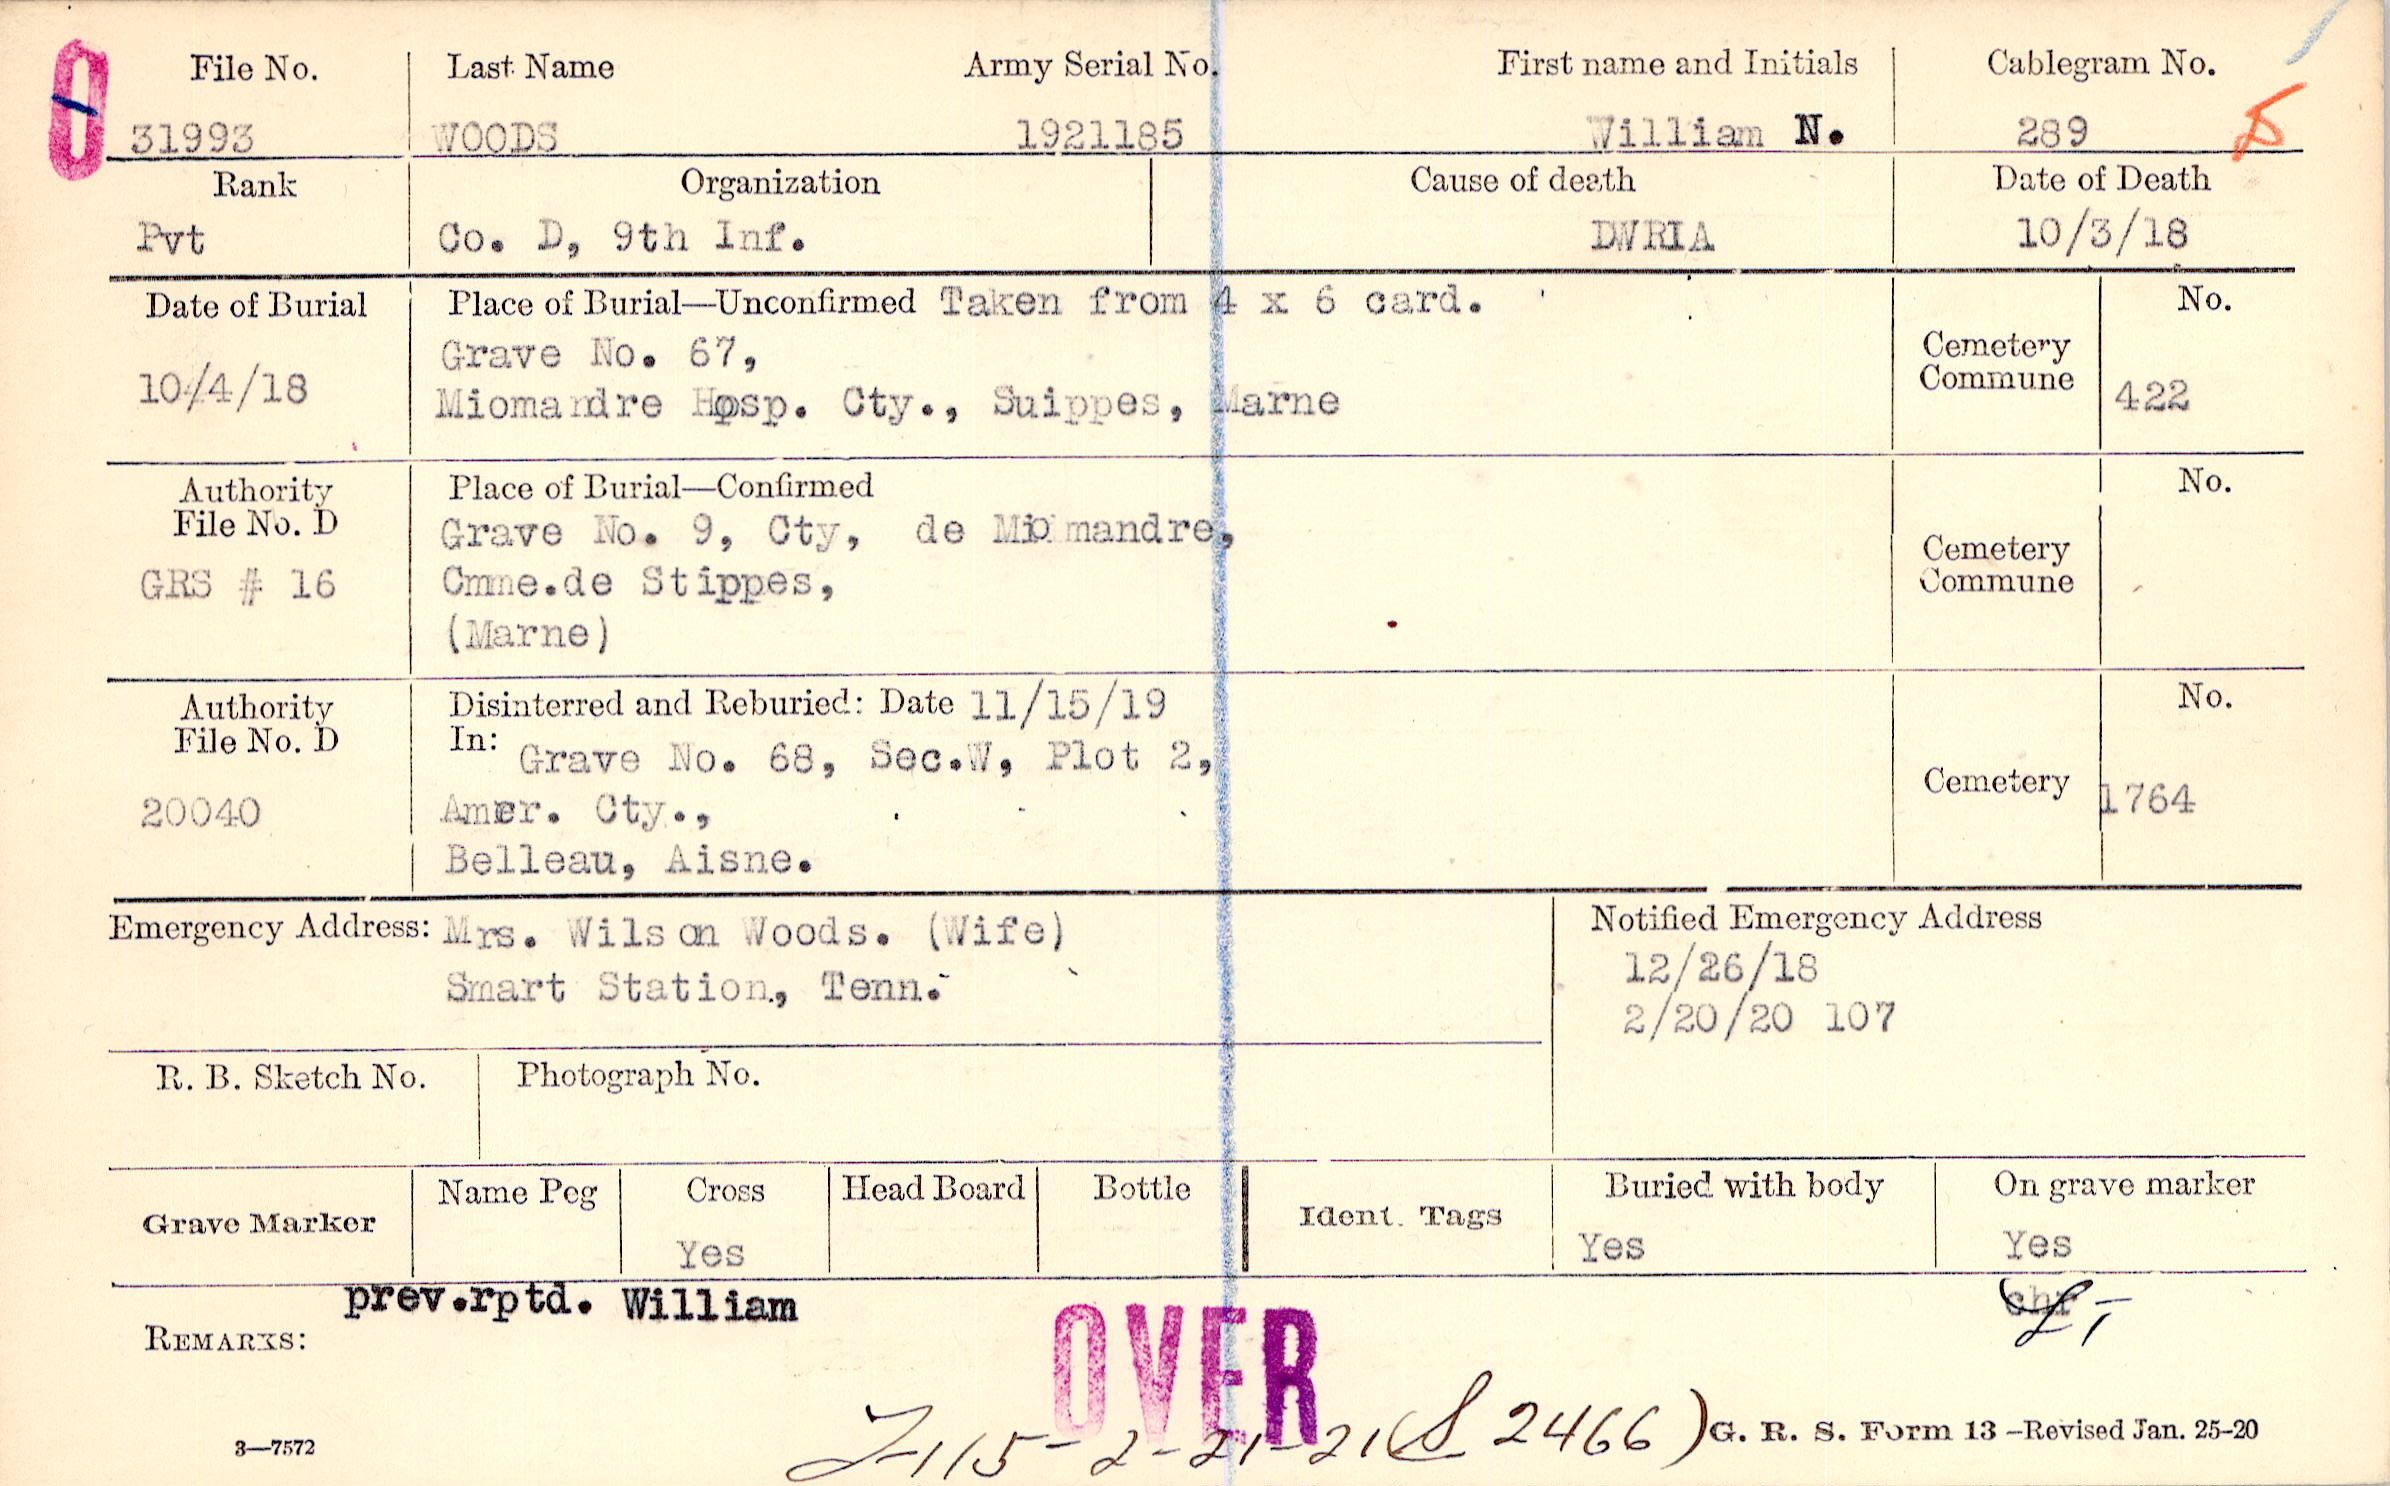 File No. Last Name Army Serial No. First name and Initials Cablegram No.
31993 WOODS 1921185 William N. 289
Rank Organization Cause of death Date of Death
Pvt Co. D, 9th Inf. DWRIA 10/3/18
Date of Burial Place of Burial—Unconfirmed Taken from 4 x 6 card. No.
Grave No. 67, Cemetery
10/4/18 Miomandre Hosp. Cty., Suippes, Marne Commune 422
Authority Place of Burial—Confirmed No.
File No. D Grave No. 9, Cty, de Miomandre, Cemetery
GRS # 16 Cmne.de Stippes, Commune
(Marne)
Authority Disinterred and Reburied: Date 11/15/19 No.
File No. D In: Grave No. 68, Sec.W, Plot 2, Cemetery
20040 Amer. Cty., 1764
Belleau, Aisne.
Emergency Address: Mrs. Wilson Woods. (Wife) Notified Emergency Address
Smart Station, Tenn. 12/26/18
2/20/20 107
R. B. Sketch No. Photograph No.
Grave Marker Name Peg Cross Head Board Bottle Ident. Tags Buried with body On grave marker
Yes Yes Yes
prev.rptd. William chr
REMARKS: OVER
115-2-21-21 (S 2466)
3—7572 G. R. S. Form 13 —Revised Jan. 25-20